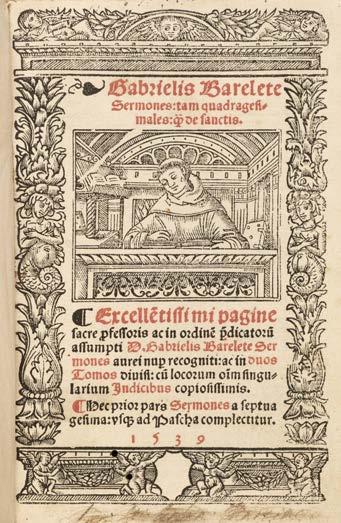 Gabrielis Barelete
Sermones: tam quadragesi-
males: qꝫ de sanctis.
¶ Excellētissimi pagine
sacre ꝓfessoris ac in ordinē p̄dicatorū
assumpti D. Gabrielis Barelete Ser
mones a rei nup recogniti: ac in duos
Tomos divisi: cū locorum oīm singu-
larium Indicibus copiosissimis.
¶ Hec prior pars Sermones a septua
gesima: vsqꝫ ad Pascha complectitur.
1539